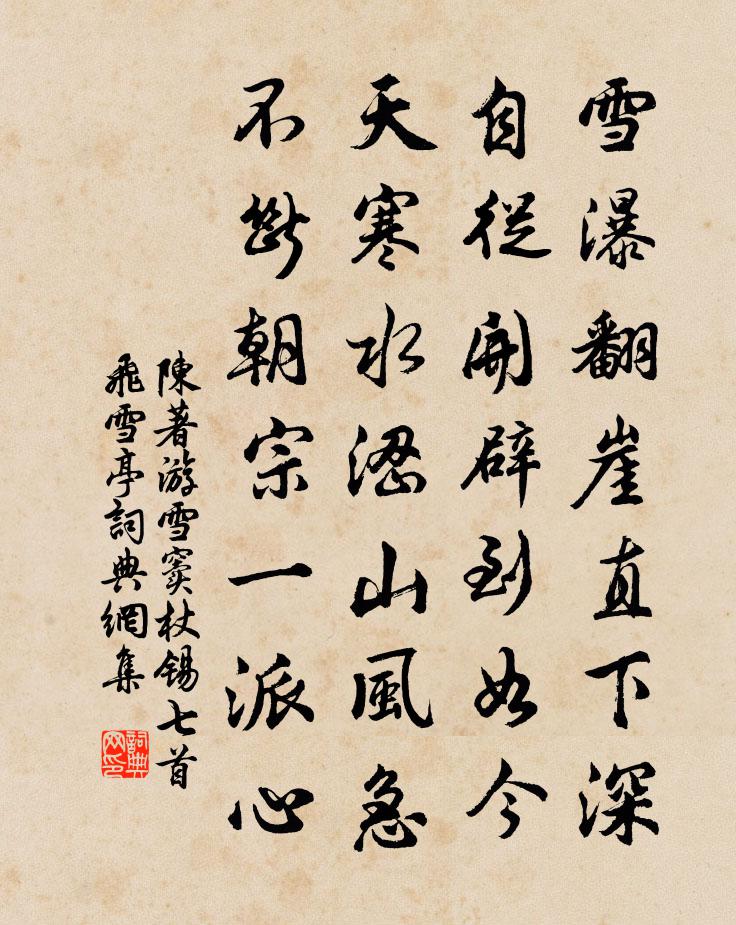 雪瀑翻崖直下深
自從開辟到如今
天寒水澀山風急
不斷朝宗一派心
陳著游雪竇杖錫七首
飛雪亭詞典網集
詞典网印